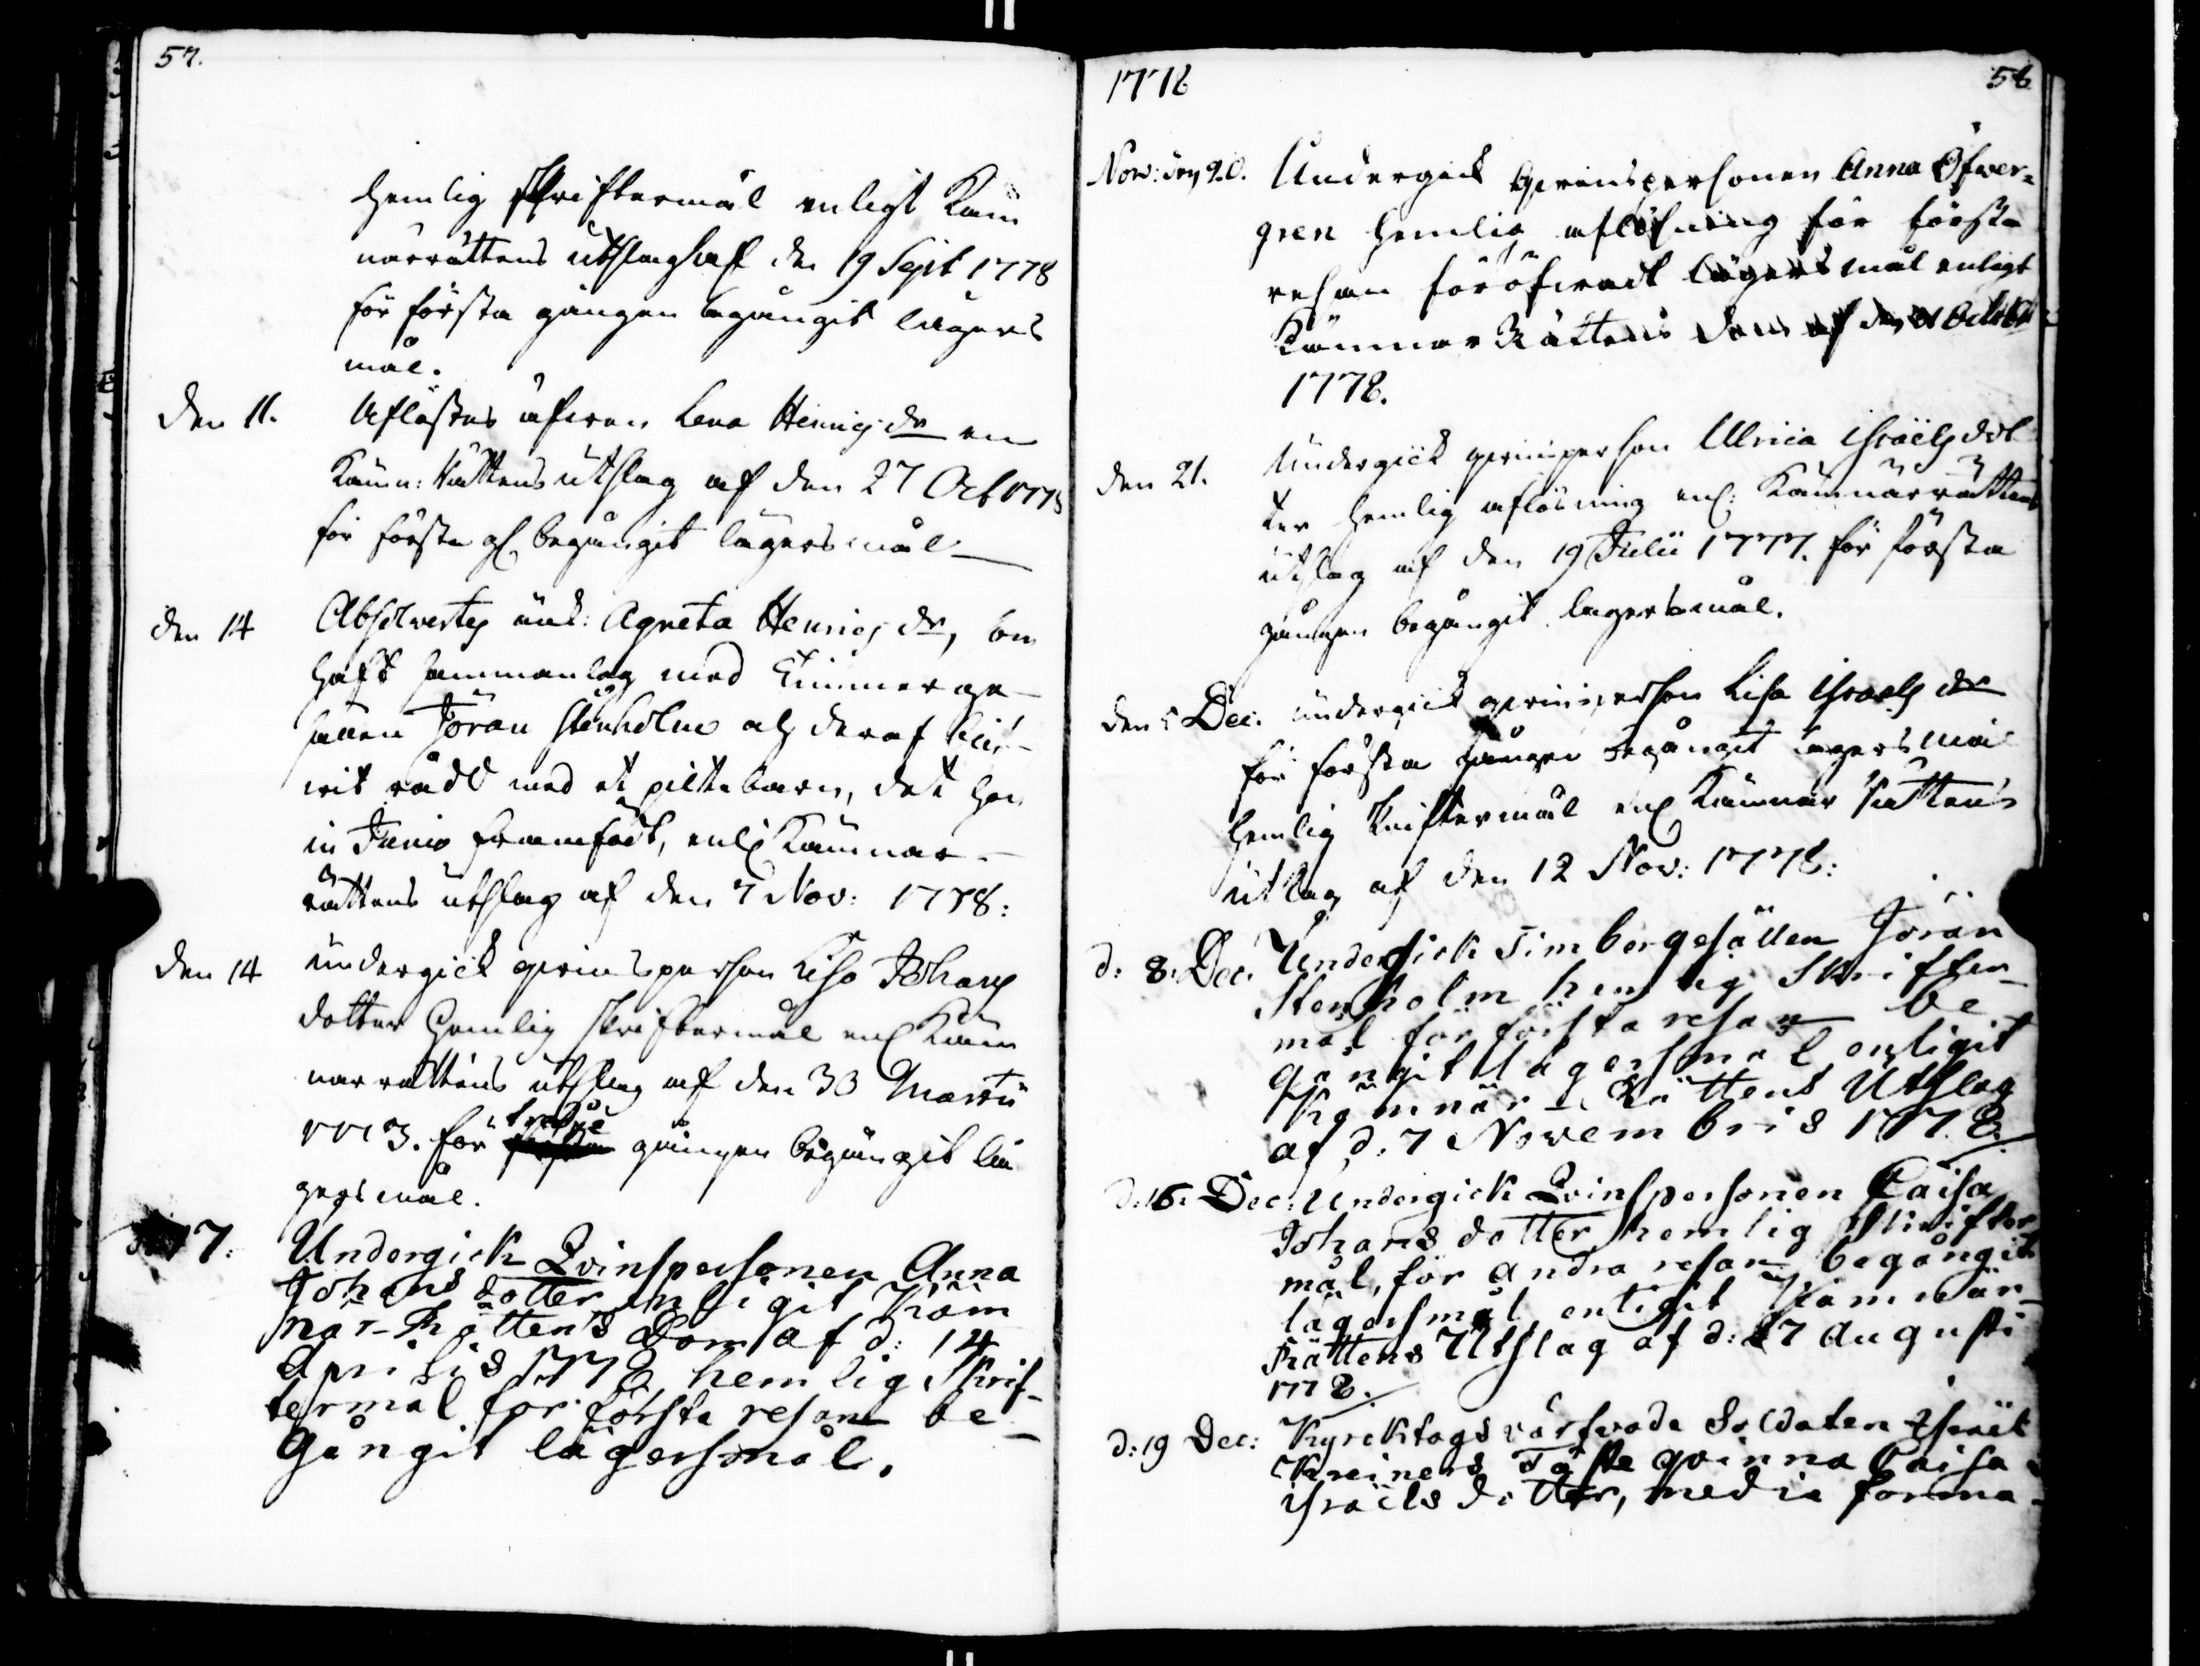 57.
hemlig skriftermål enligt Käm
närrättens utslag af den 19 Sept 1778
för första gången begångit lägers
mål.
den 11. Aflöstes äfwen Lena Henricsdr en
Kämn: Rättens utslag af den 27 Oct 1778
för första g begångit lägersmål
den 14 Absolvertes enk: Agneta Henrics dr, som
haft sammanlag med Timmerge-
sällen Jöran Stenholm och deraf blif-
wit rådd med et piltebarn, det hon
in Junio framfödt, enl Kämnär-
rättens utslag af den 7 Nov: 1778:
den 14 undergick qwinsperson Lisa Johans
dotter hemlig skriftermål enl Käm
när rättens utslag af den 30 Martii
1773. för tredje gången begångit lä
gersmål.
17. Undergick Qvinspersonen Anna
Johansdotter enligit Käm
när-Rättens Dom af d: 14
Aprilis 1778 hemlig Skrif-
termål för första resan be-
gångit lägersmål.
1778 58
Nov: den 20. Undergick Qwinspersonen Anna Öfwer=
gren hemlig aflösning för första
resan föröfwadt lägersmål enligt
Kämnär Rättens dom af den Octob
1778.
den 21. Undergick qwinsperson Ulrica Israelsdot
ter hemlig aflösning enl: Kämnärrättens
utslag af den 19 Julii 1777. för första
gången begångit lägersmål.
den 5 Dec: undergick qwinsperson Lisa Israels dr
för första gången begångit lägersmål
hemlig skriftermål enl Kämnär Rättens
utslag af den 12 Nov: 1778:
d: 8: Dec: Undergick Timbergesällen Jöran
Stenholm hemlig Skrifter-
mål för första resan be-
gångit lägersmål enligit
Kämnär-Rättens Utslag
af d: 7 Novembris 1778.
d: 16: Dec: Undergick Qvinspersonen Caisa
Johansdotter hemlig Skrifter
mål, för andra resan begångit
lägersmål enligit Kämnär-
Rättens Utslag af d: 27 Augusti
1778.
d: 19 Dec: Kyrcktogs Soldaten Israel
Kreiners Fäste qvinna Caisa
Israelsdotter, media forma-